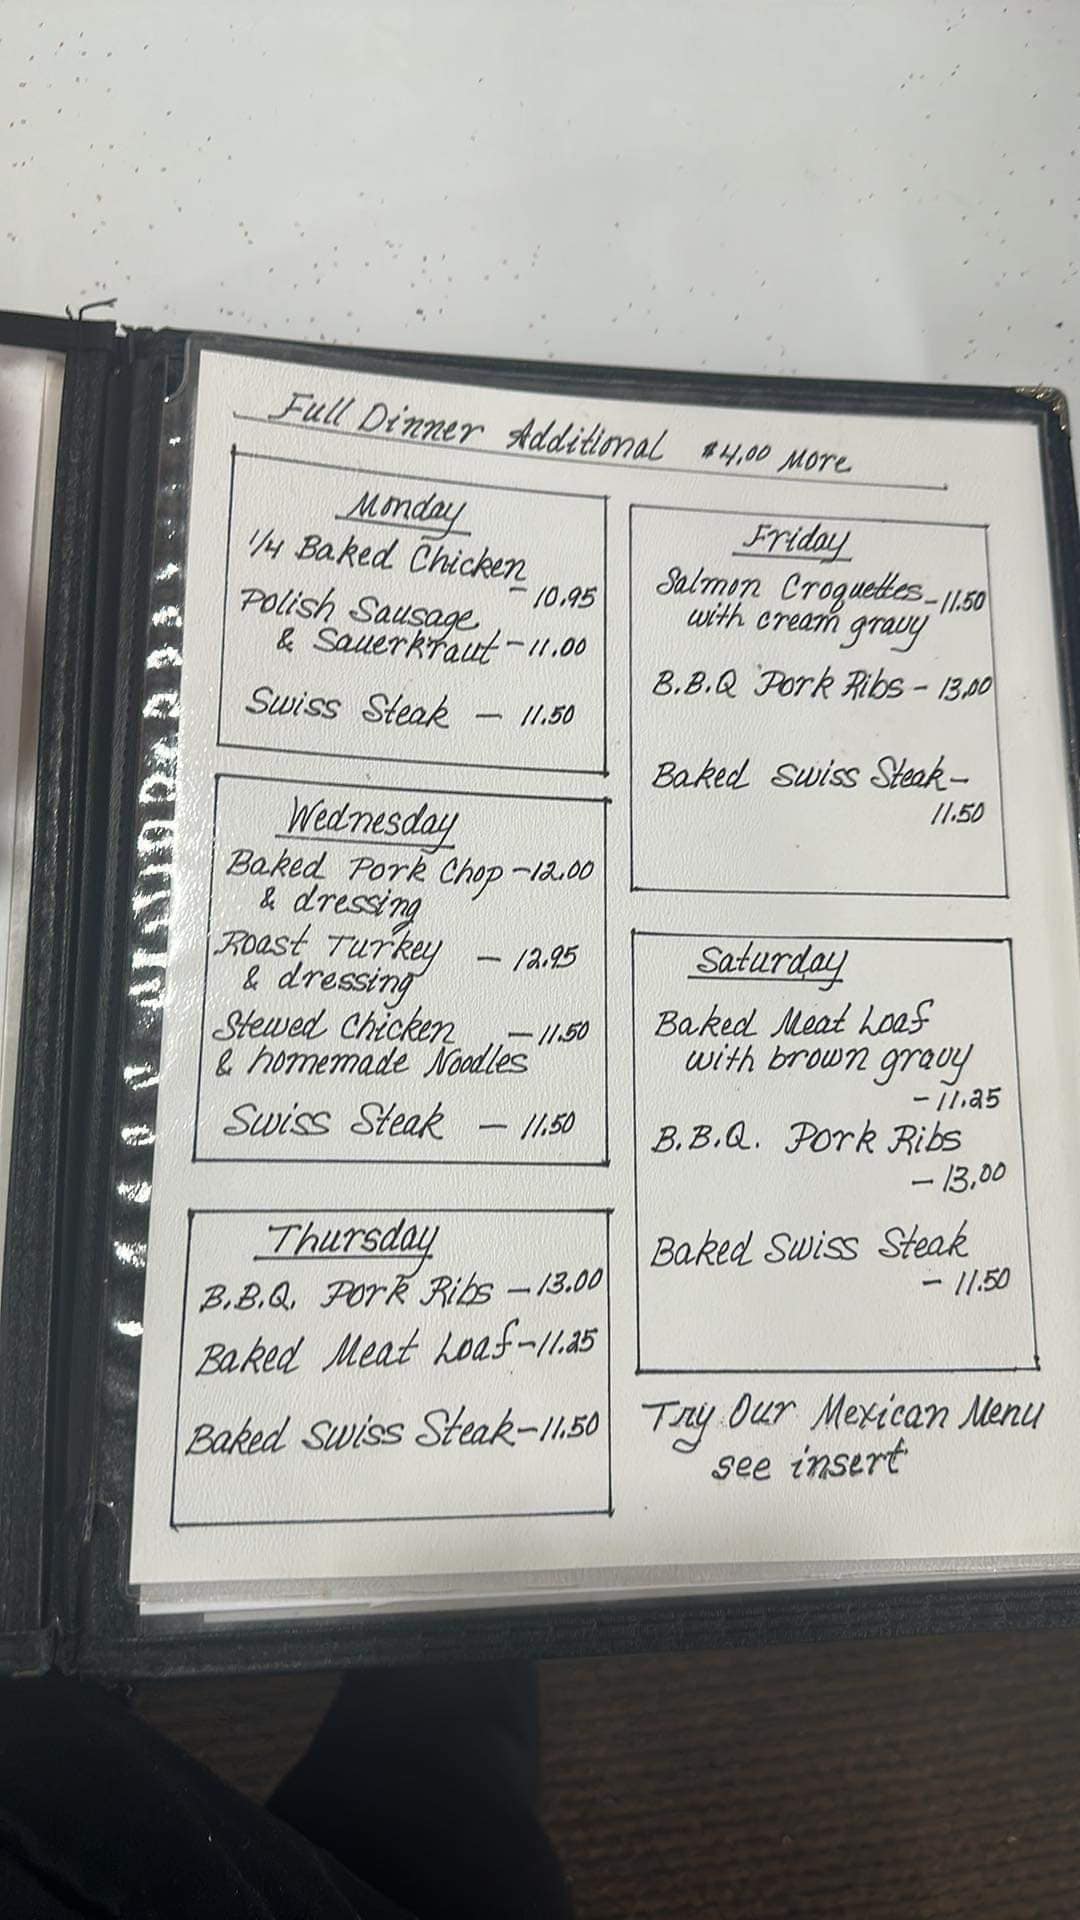 Full Dinner Additional $4.00 More
Monday
1/4 Baked Chicken
- 10.95
Polish Sausage
& Sauerkraut - 11.00
Swiss Steak - 11.50
Wednesday
Baked Pork Chop - 12.00
& dressing
Roast Turkey - 12.95
& dressing
Stewed Chicken - 11.50
& homemade Noodles
Swiss Steak - 11.50
Thursday
B.B.Q. Pork Ribs - 13.00
Baked Meat Loaf - 11.25
Baked Swiss Steak - 11.50
Friday
Salmon Croquettes - 11.50
with cream gravy
B.B.Q Pork Ribs - 13.00
Baked Swiss Steak -
11.50
Saturday
Baked Meat Loaf
with brown gravy
- 11.25
B.B.Q. Pork Ribs
- 13.00
Baked Swiss Steak
- 11.50
Try Our Mexican Menu
see insert